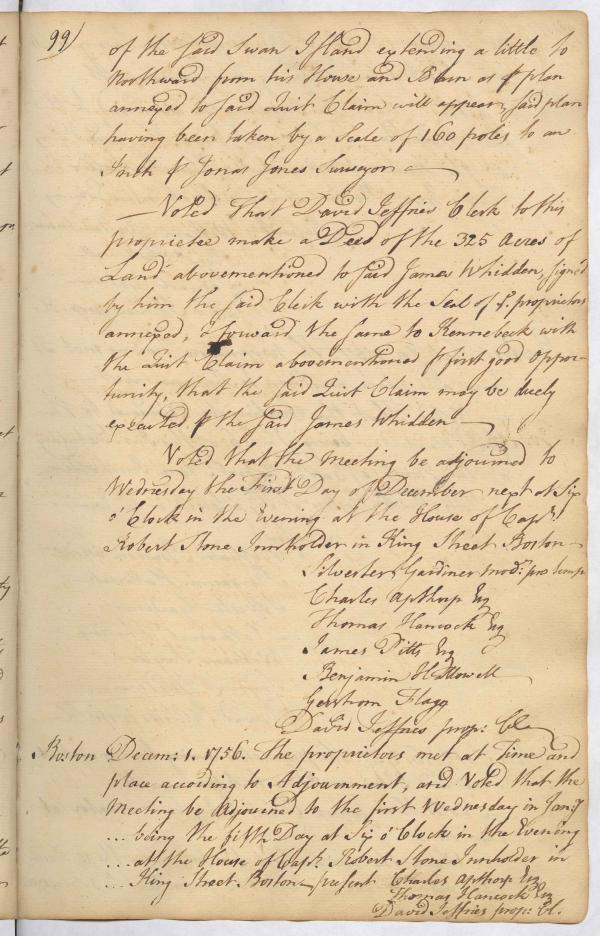 99)
of the said Swan Island extending a little to
Northward from his House and Barn as ⅌ plan
annexed to said Quit Claim will appear, said plan
having been taken by a Scale of 160 poles to an
Inch ⅌ Jonas Jones Surveyor
Voted That David Jeffries Clerk to this
proprietee make a Deed of the 325 Acres of
Land abovementioned to said James Whidden, sign'd
by him the said Clerk with the Seal of ye proprietors
annexed, & forward the same to Kennebeck with
the Quit Claim abovementioned ⅌ first good Oppor-
tunity, that the said Quit Claim may be duely
executed ⅌ the said James Whidden
Voted that the Meeting be adjourned to
Wednesday the First Day of December next at Six
o'Clock in the Evening at the House of Capt.
Robert Stone Innholder in King Street Boston
Silvester Gardiner modr. pro temp
Charles Apthorp Esq
Thomas Hancock Esq
James Pitts Esq
Benjamin Hallowell
Gershom Flagg
David Jeffries prop: Cle
Boston Decem: 1. 1756. The proprietors met at Time and
place according to Adjournment, and Voted that the
Meeting be Adjourned to the first Wednesday in Jany
... being the fifth Day at Six o'Clock in the Evening
... at the House of Capt. Robert Stone Innholder in
... King Street Boston present Charles Apthorp Esq
Thomas Hancock Esq
David Jeffries prop: Cl.